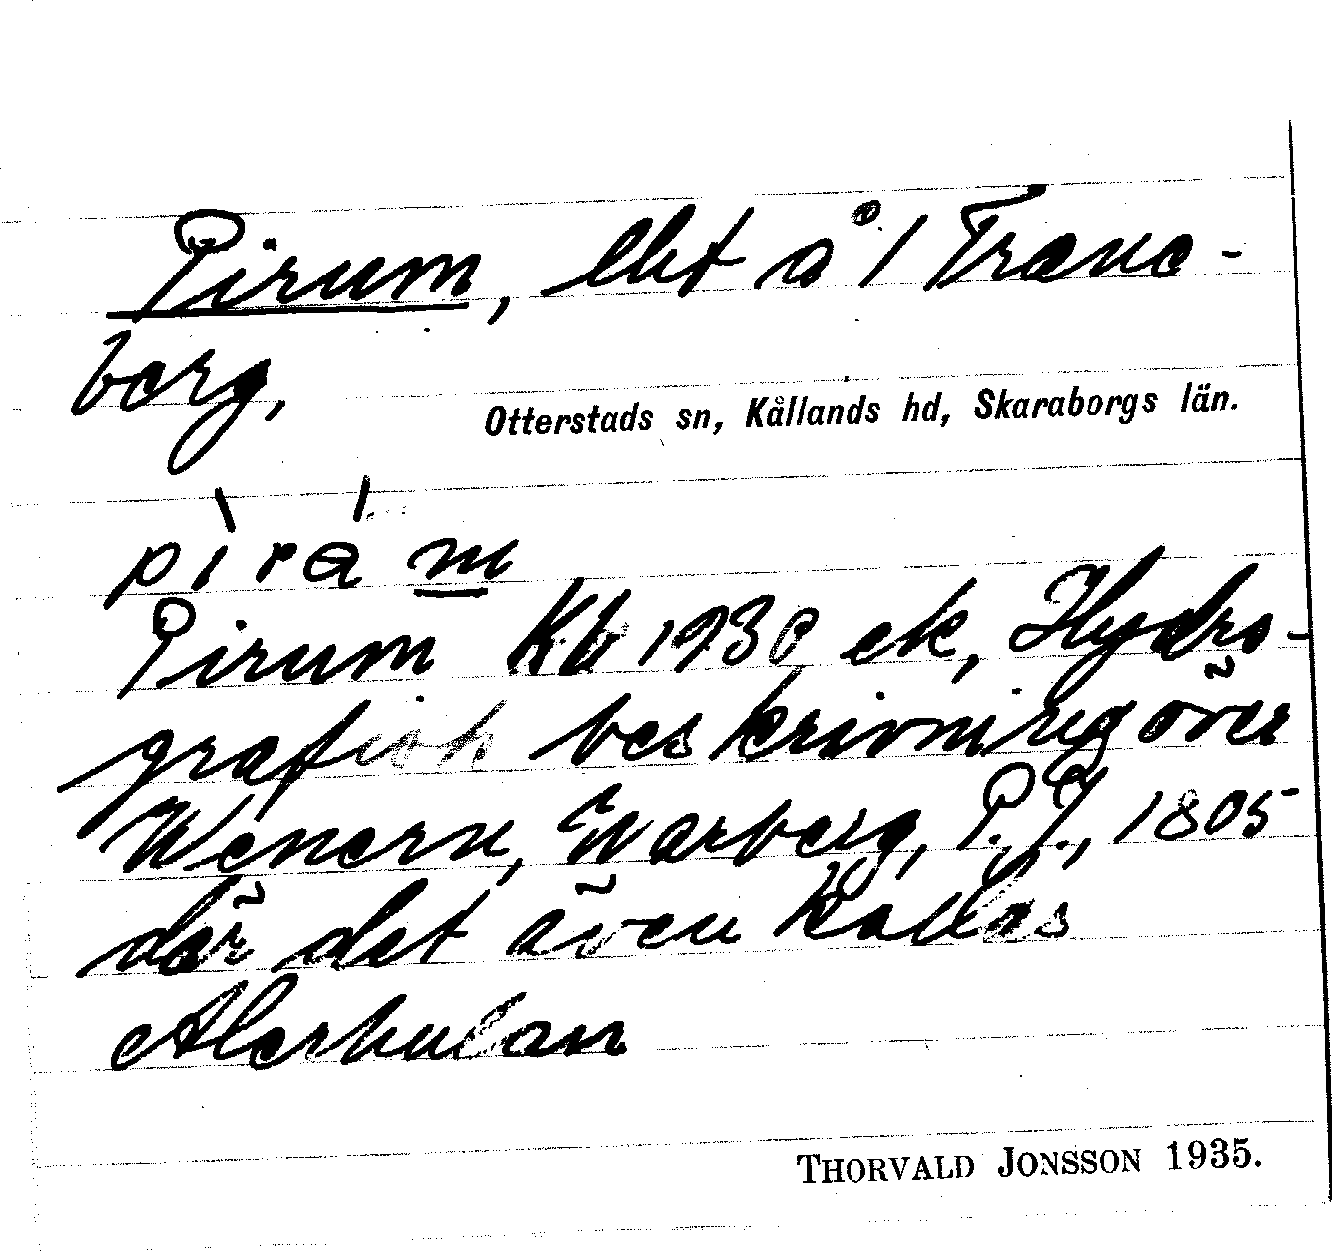 Pirum, lht å 1 Trane-
berg,
Otterstads sn, Kållands hd, Skaraborgs län.
Pirum Kb 1930 ek, Hydro-
grafisk beskrivning över
Wenern, Warberg, P. J., 1805
där det även kallas
Alerhulan
THORVALD JONSSON 1935.